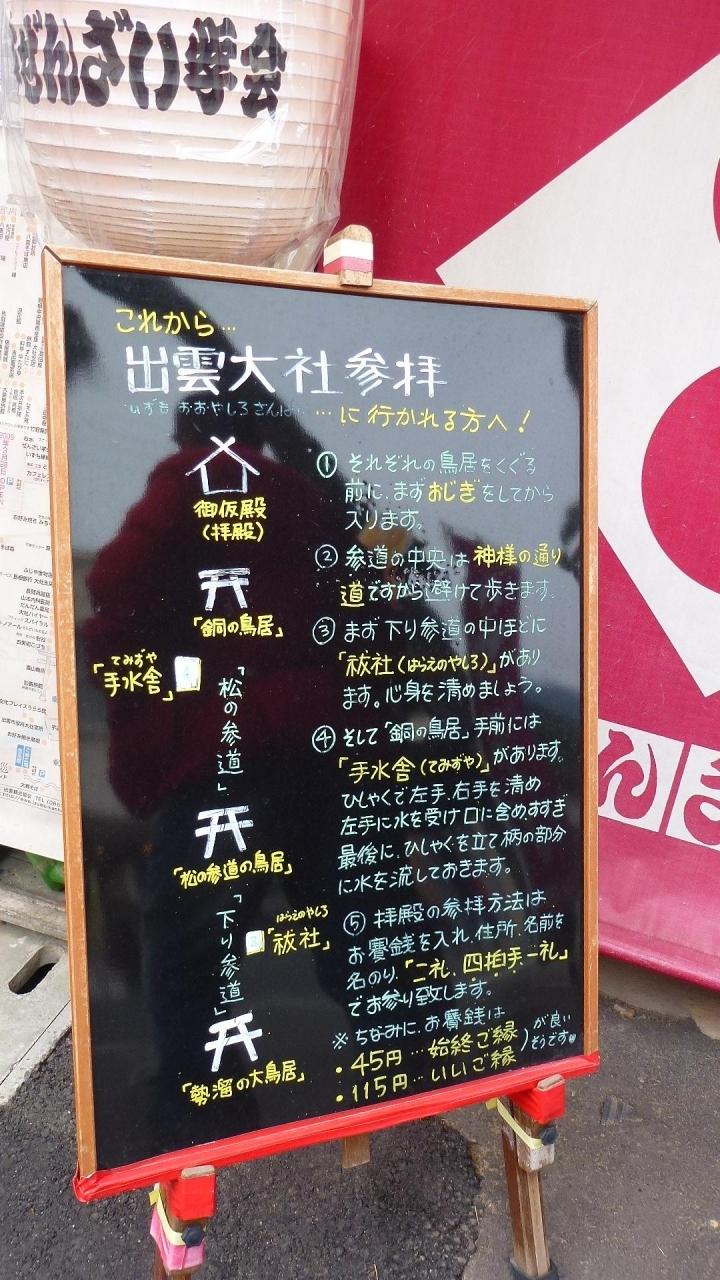 ぜんざい學会
これから…
出雲大社参拝
いずもおおやしろさんは… …に行かれる方へ!
御仮殿
(拝殿)
「銅の鳥居」
てみずや
「手水舎」
「松の参道」
「松の参道の鳥居」
「下り参道」
はらえのやしろ
「祓社」
「勢溜の大鳥居」
① それぞれの鳥居をくぐる
前に、まずおじぎをしてから
入ります。
② 参道の中央は神様の通り
道ですから避けて歩きます。
③ まず下り参道の中ほどに
「祓社(はらえのやしろ)」があり
ます。心身を清めましょう。
④ そして「銅の鳥居」手前には
「手水舎(てみずや)」があります。
ひしゃくで左手、右手を清め
左手に水を受け口に含めすすぎ
最後に、ひしゃくを立て柄の部分
に水を流しておきます。
⑤ 拝殿の参拝方法は
お賽銭を入れ、住所、名前を
名のり、「二礼、四拍手一礼」
でお参り致します。
※ちなみに、お賽銭は
・45円…始終ご縁
・115円…いいご縁
)が良い
そうです